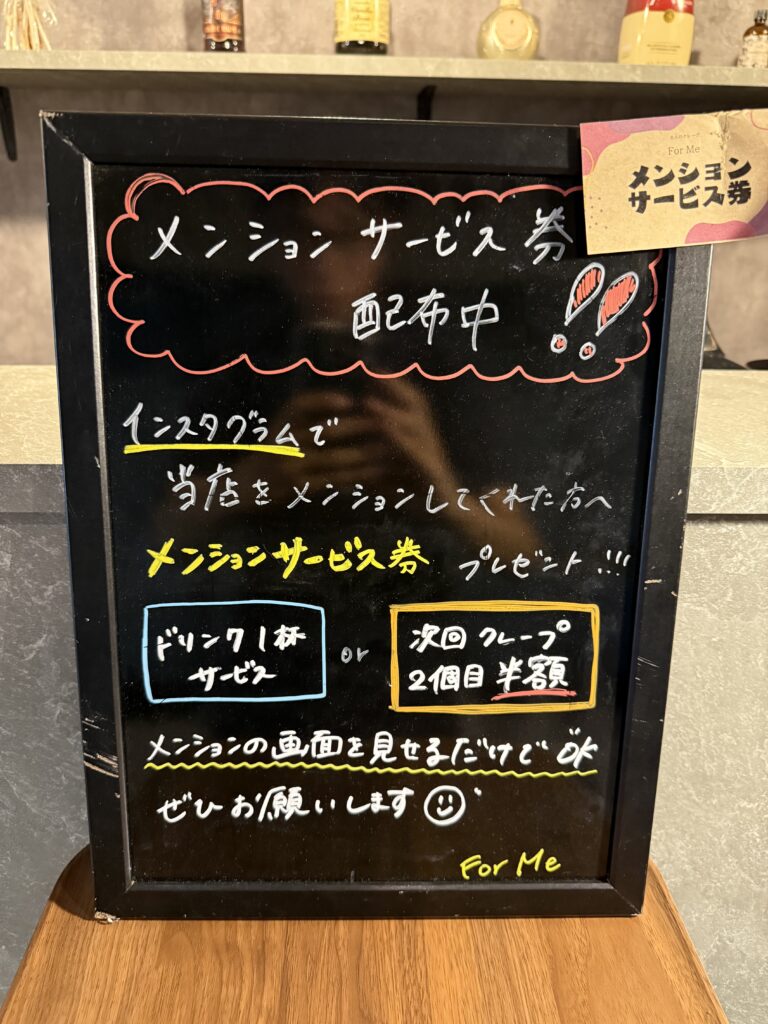 For Me
メンション
サービス券
メンションサービス券
配布中!!
インスタグラムで
当店をメンションしてくれた方へ
メンションサービス券 プレゼント!!!
ドリンク1杯
サービス
or
次回クレープ
2個目半額
メンションの画面を見せるだけでOK
ぜひお願いします
For Me